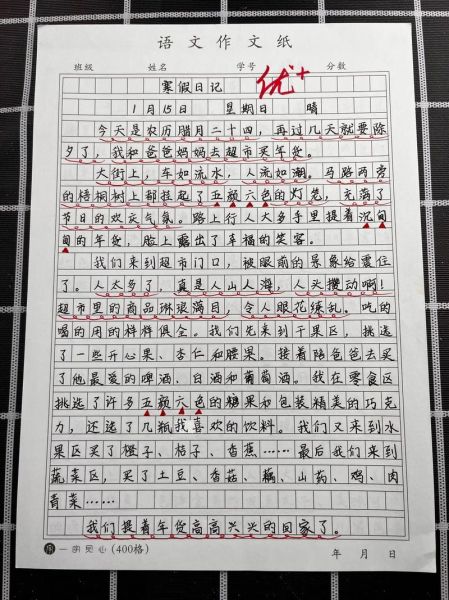 语文作文纸
班级 姓名 学号 分数
优+
寒假日记
1月15日 星期日 晴
今天是农历腊月二十四,再过几天就要除
夕了,我和爸爸妈妈去超市买年货。
大街上,车如流水,人流如潮。马路两旁
的梧桐树上都挂起了五颜六色的灯笼,充满了
节日的欢庆气氛。路上行人大多手里提着沉甸
甸的年货,脸上露出了幸福的笑容。
我们来到超市门口,被眼前的景象给震住
了。人太多了,真是人山人海,人头攒动啊!
超市里的商品琳琅满目,令人眼花缭乱。吃的
喝的用的样样俱全。我们先来到干果区,挑选
了一些开心果、杏仁和腰果。接着陪爸爸去买
了他最爱的啤酒、白酒和葡萄酒。我在零食区
挑选了许多五颜六色的糖果和包装精美的巧克
力,还选了几瓶我喜欢的饮料。我们又来到水
果区买了橙子、桔子、香蕉……最后我们来到
蔬菜区,买了土豆、香菇、藕、山药、鸡、肉
青菜……
我们提着年货高高兴兴的回家了。
一帘贝心(400格) 年 月 日